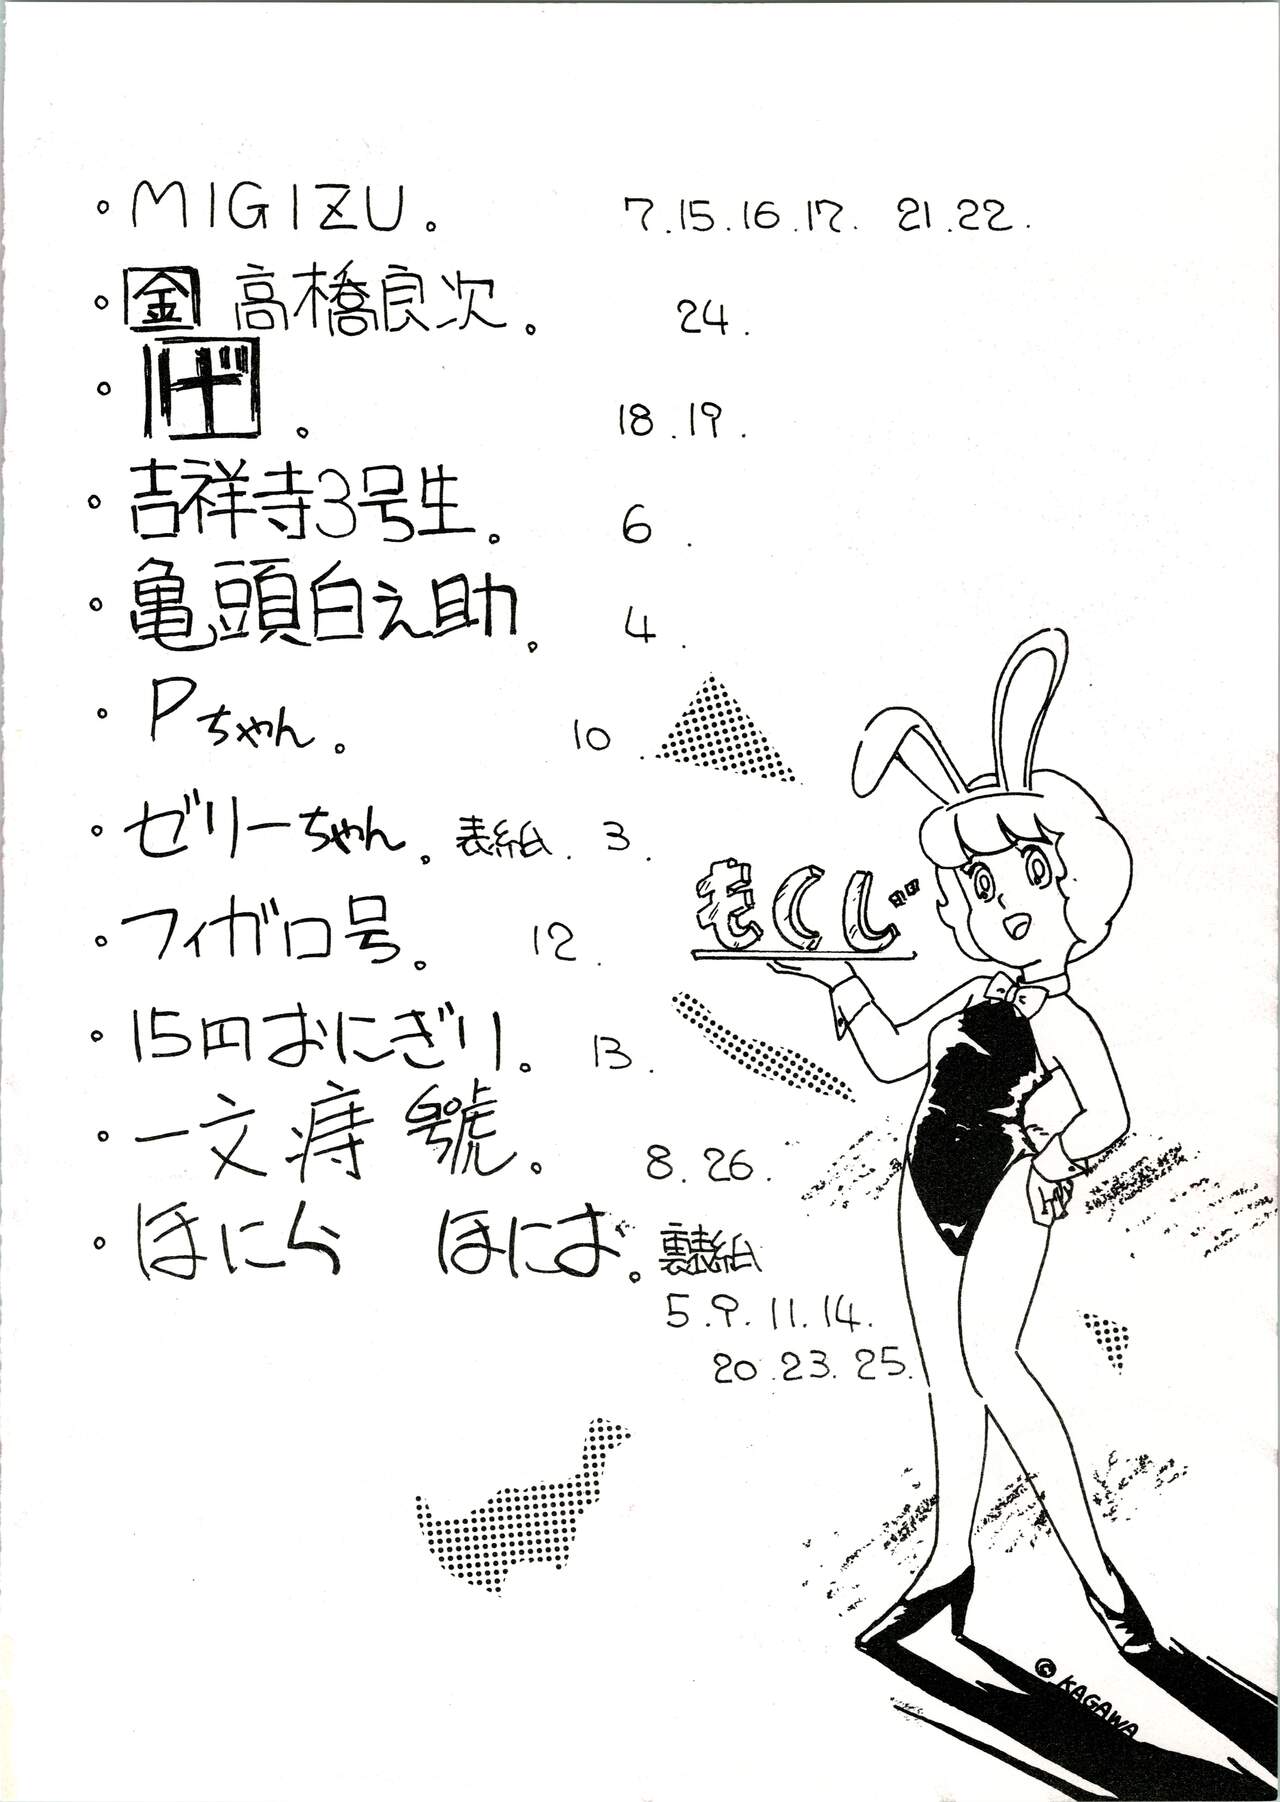 ・MIGIZU。 7.15.16.17. 21.22.
・金 高橋良次。 24.
・ 。 18.19.
・吉祥寺3号生。 6.
・亀頭白之助。 4.
・Pちゃん。 10.
・ゼリーちゃん。表紙.3.
・フィガロ号。 12.
・15円おにぎり。 13.
・一文痔 號。 8.26.
・ほにら ほにお。裏表紙
5.9.11.14.
20.23.25.
もくじ
© KAGAWA